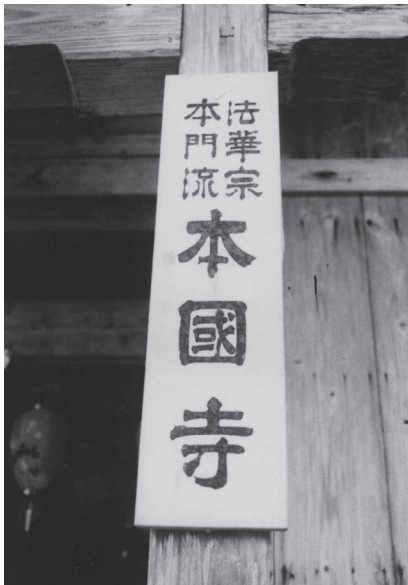 法華宗
本門流
本國寺